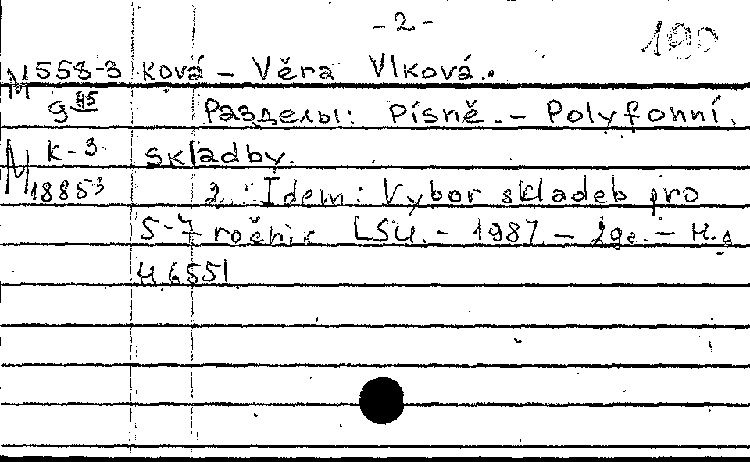 - 2 -
190
М 558-3 ková – Věra Vlková.
g 45 Разделы: Písně. – Polyfonní.
М К-3 skladby.
18853 2. Idem: Vybor skladeb pro
5-7 ročnic LSU. – 1987. –
H 6551